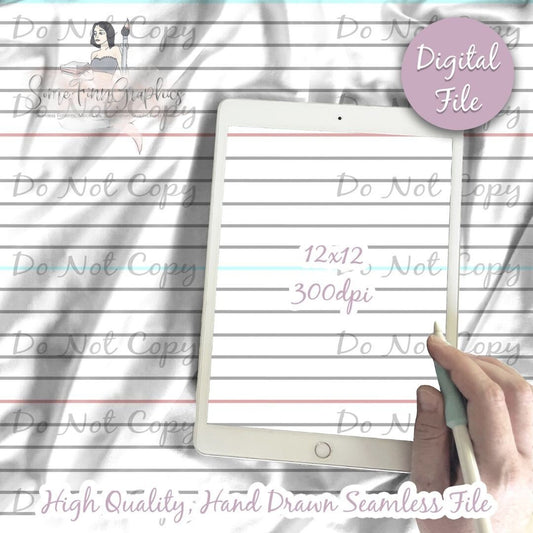 Do Not Copy
Do Not Copy
Digital
File
SomeFinnGraphics
Do Not Copy
Do Not Copy
Do Not Copy
Do Not Copy
12x12
Do Not Copy
Do Not Copy
300dpi
Do Not Copy
Do Not Copy
Do Not Copy
Do Not Copy
High Quality, Hand Drawn Seamless File